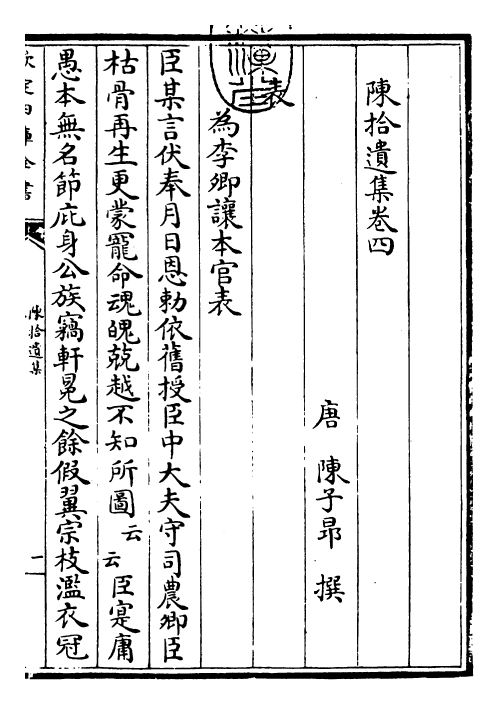 陳拾遺集卷四
唐 陳子昂 撰
表
為李卿讓本官表
臣某言伏奉月日恩勅依舊授臣中大夫守司農卿臣
枯骨再生更蒙寵命魂魄兢越不知所圖云云臣寔庸
愚本無名節庇身公族竊軒冕之餘假翼宗枝濫衣冠
陳拾遺集